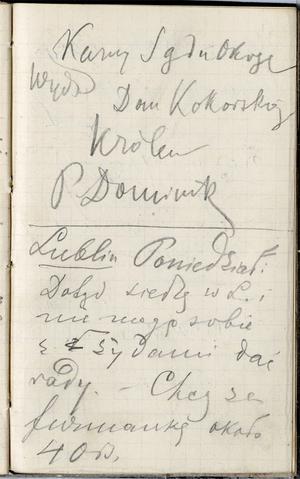 Karny Sądu Okrę
Wydz
Dom Kokowskiej
Królew
P Dominik
Lublin Poniedział:
Dotąd siedzę w L. i
nie mogę sobie
z Żydami dać
rady. – Chcą za
furmankę około
40 rs.